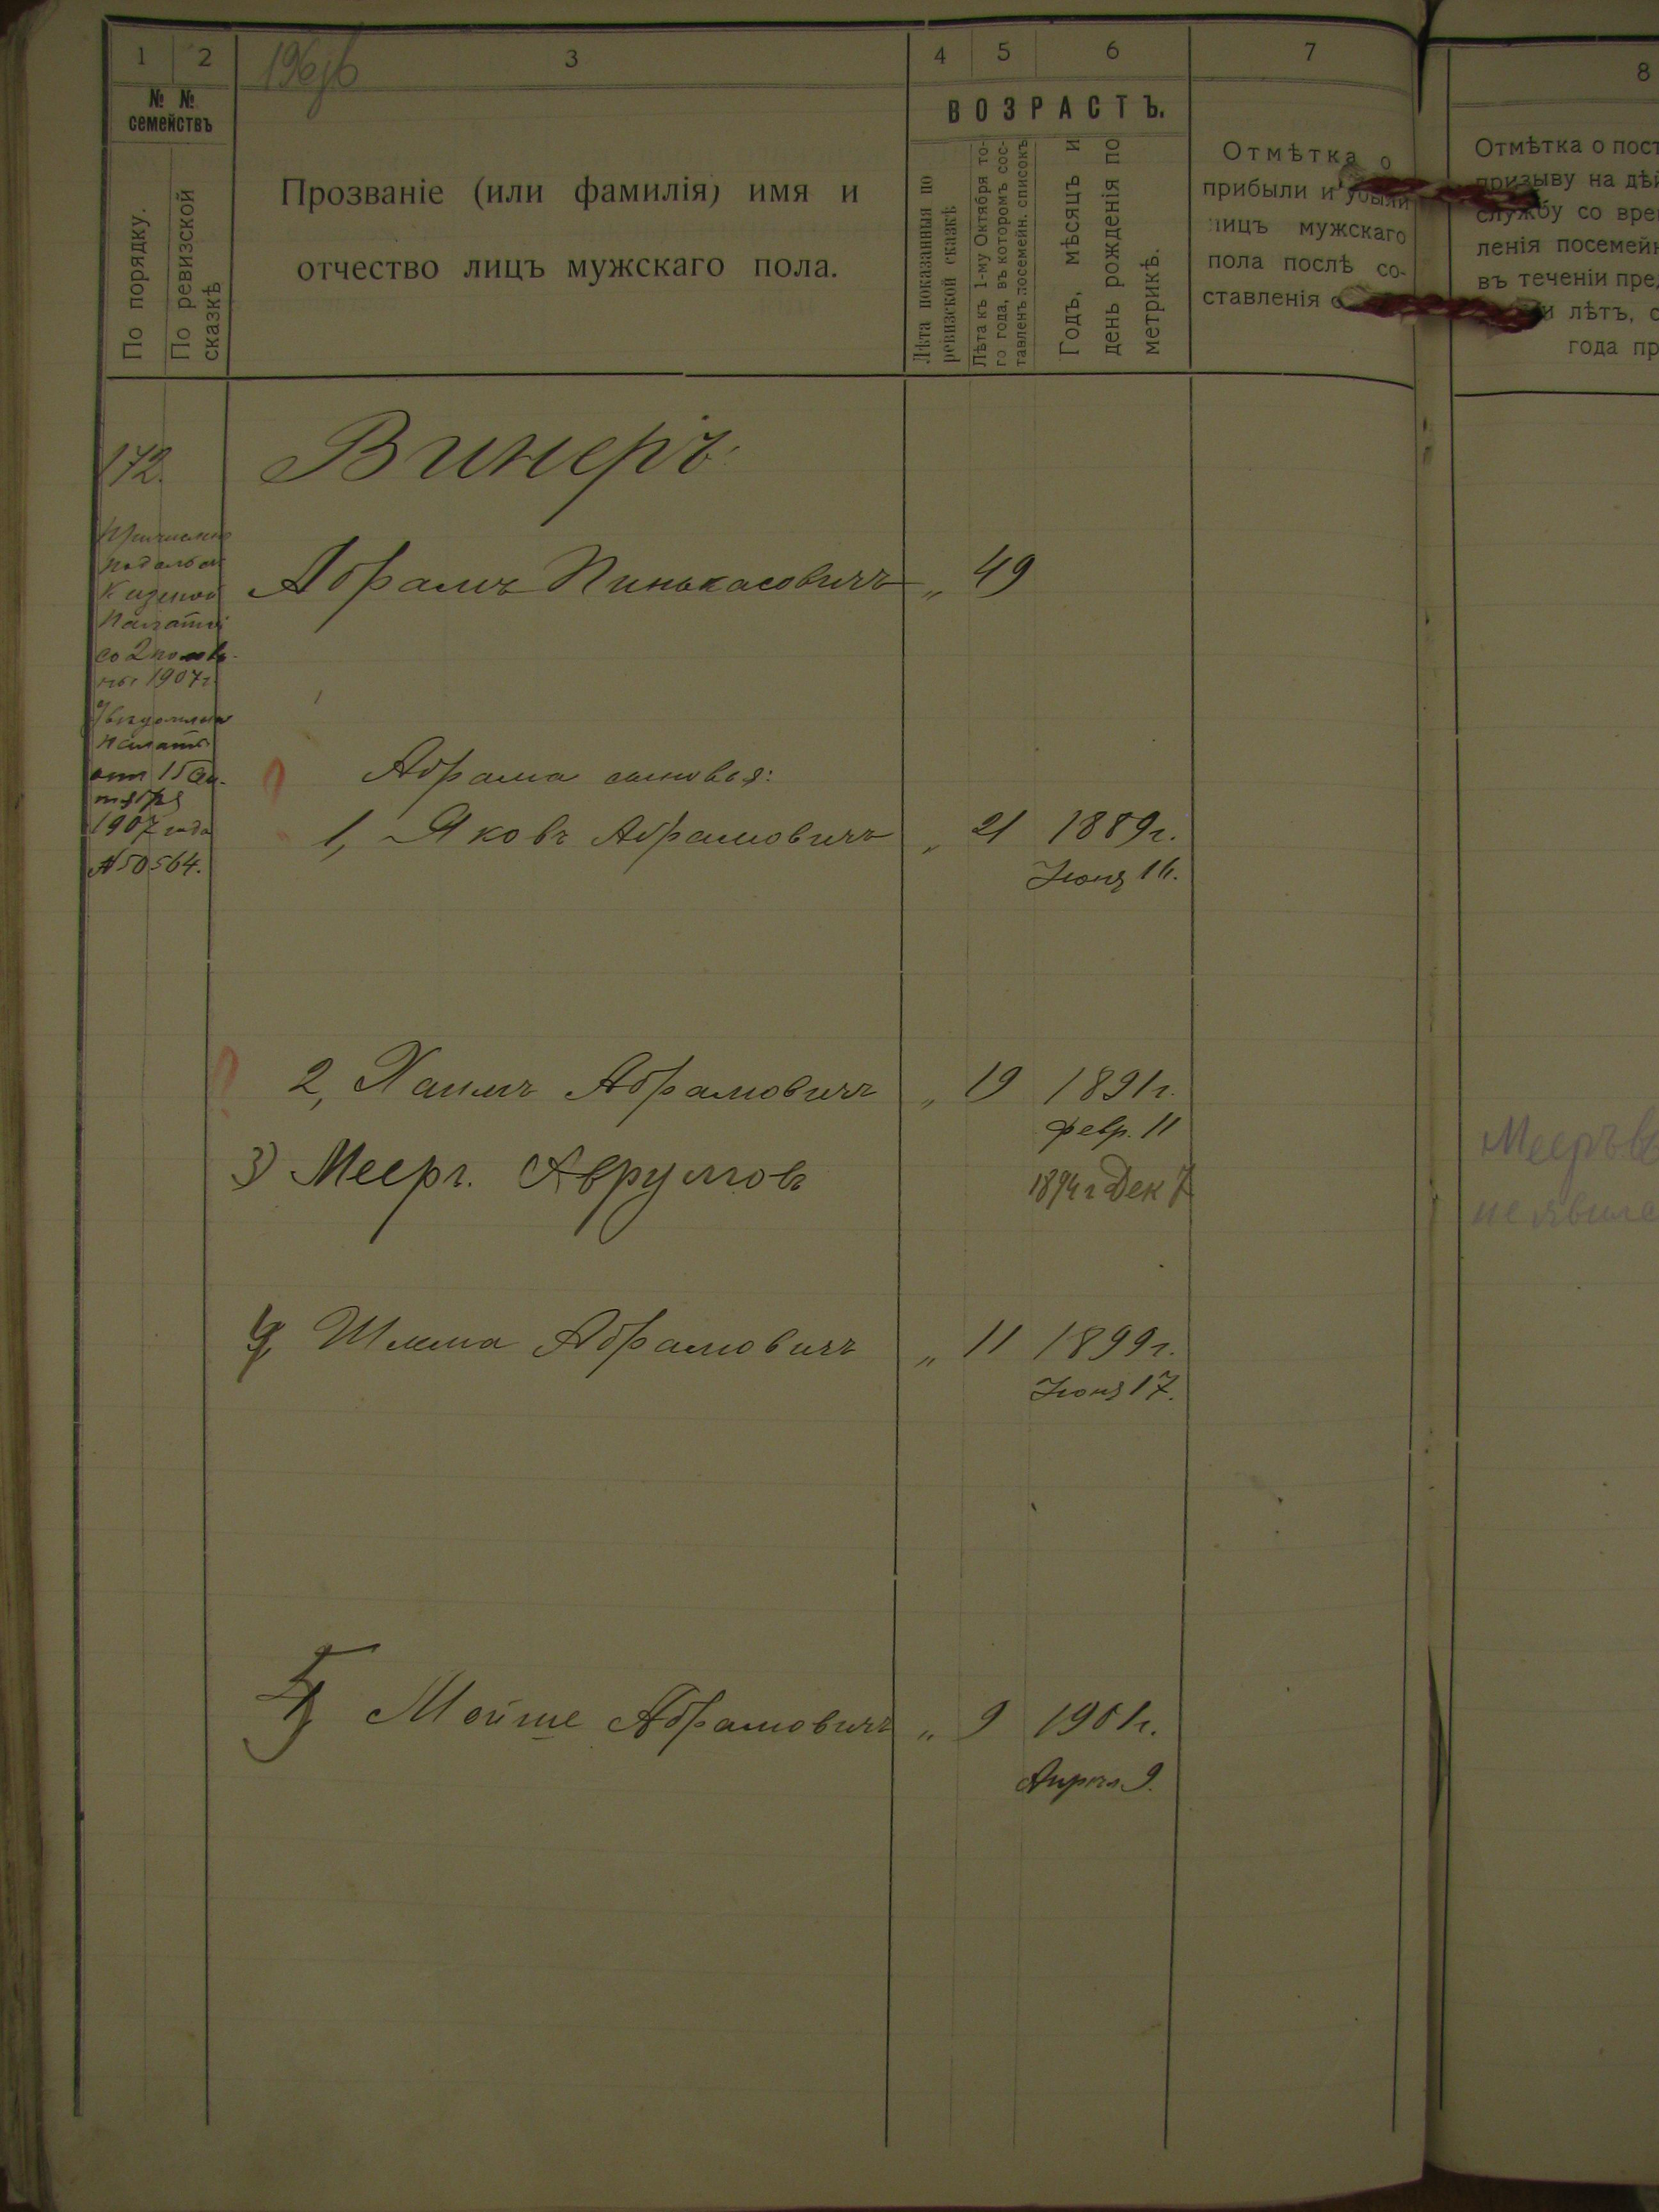 1 2 3 4 5 6 7 8
№ № семействъ
По порядку.
По ревизской сказкѣ
Прозваніе (или фамилія) имя и
отчество лицъ мужскаго пола.
ВОЗРАСТЪ.
Лѣта показанныя по
ревизской сказкѣ
Лѣта къ 1-му Октября то-
го года, въ которомъ сос-
тавленъ посемейн. списокъ
Годъ, мѣсяцъ и
день рожденія по
метрикѣ.
Отмѣтка о
прибыли и убыли
лицъ мужскаго
пола послѣ со-
ставленія
Отмѣтка о пост
призыву на дѣй
службу со вре
ленія посемейн
въ теченіи пред
и лѣтъ, с
года пр
172. Винеръ
Абрамъ Пинькасовичъ „ 49
Подольск
Казеной
Палатой
со 2 полов-
ны 1907 г.
Палаты
отъ 15 Ок-
тября
1907 года
№ 50564.
Абрама сыновья:
1, Яковъ Абрамовичъ „ 21 1889 г.
Іюня 16.
2, Хаимъ Абрамовичъ „ 19 1891 г.
Февр. 11
3) Мееръ. Аврумовъ 1894 г Дек 7
4, Шлема Абрамовичъ „ 11 1899 г.
Іюня 17.
5) Мойше Абрамовичъ „ 9 1901 г.
Апрѣля 9.
Мееръ
не явилс